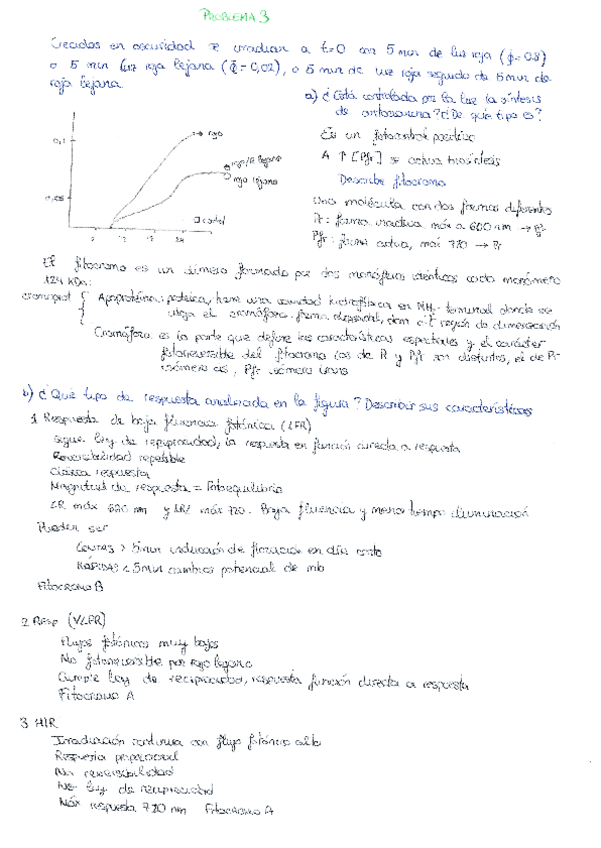 PROBLEMA 3
Crecidas en oscuridad se irradian a t=0 con 5 min de luz roja (φ=0.8)
o 5 min luz roja lejana (φ=0,02), o 5 min de luz roja seguido de 5 min de
roja lejana
a) ¿Está controlada por la luz la síntesis
de antocianina? ¿De qué tipo es?
Es un fotocontrol positivo
A ↑ [Pfr] se activa biosíntesis
Describe fitocromo
Una molécula con dos formas diferentes
Pr: forma inactiva máx a 600 nm → Pfr
Pfr: forma activa, máx 720 → Pr
0,1
rojo
rojo/R lejano
rojo lejano
0,05
control
El fitocromo es un dímero formado por dos monómeros idénticos cada monómero
124 KDa:
Apoproteína: proteica, tiene una cavidad hidrofílica en NH2- terminal donde se
aloja el cromóforo. forma, dom c-t región de dimerización
Cromóforo es la parte que define las características espectrales y el carácter
fotorreversible del fitocromo (los de Pr y Pfr son distintos, el de Pr
isómero cis, Pfr isómero trans
b) ¿Qué tipo de respuesta analizada en la figura? Describir sus características
1 Respuesta de baja fluencia fotónica (LFR)
sigue ley de reciprocidad, la respuesta en función directa a respuesta
Reversibilidad repetible
Clásica respuesta
Magnitud de respuesta = Fotoequilibrio
máx 720. Baja fluencia y menor tiempo iluminación
Pueden ser
LENTAS > 5min inducción de floración en día corto
RÁPIDAS < 5min cambios potencial de mb
FITOCROMO B
2 Resp (VLFR)
Flujos fotónicos muy bajos
No fotorreversible por rojo lejano
Cumple ley de reciprocidad, respuesta función directa a respuesta
FITOCROMO A
3 HIR
Irradiación continua con flujo fotónico alto
Respuesta proporcional
No reversibilidad
No ley de reciprocidad
Máx respuesta 720 nm FITOCROMO A